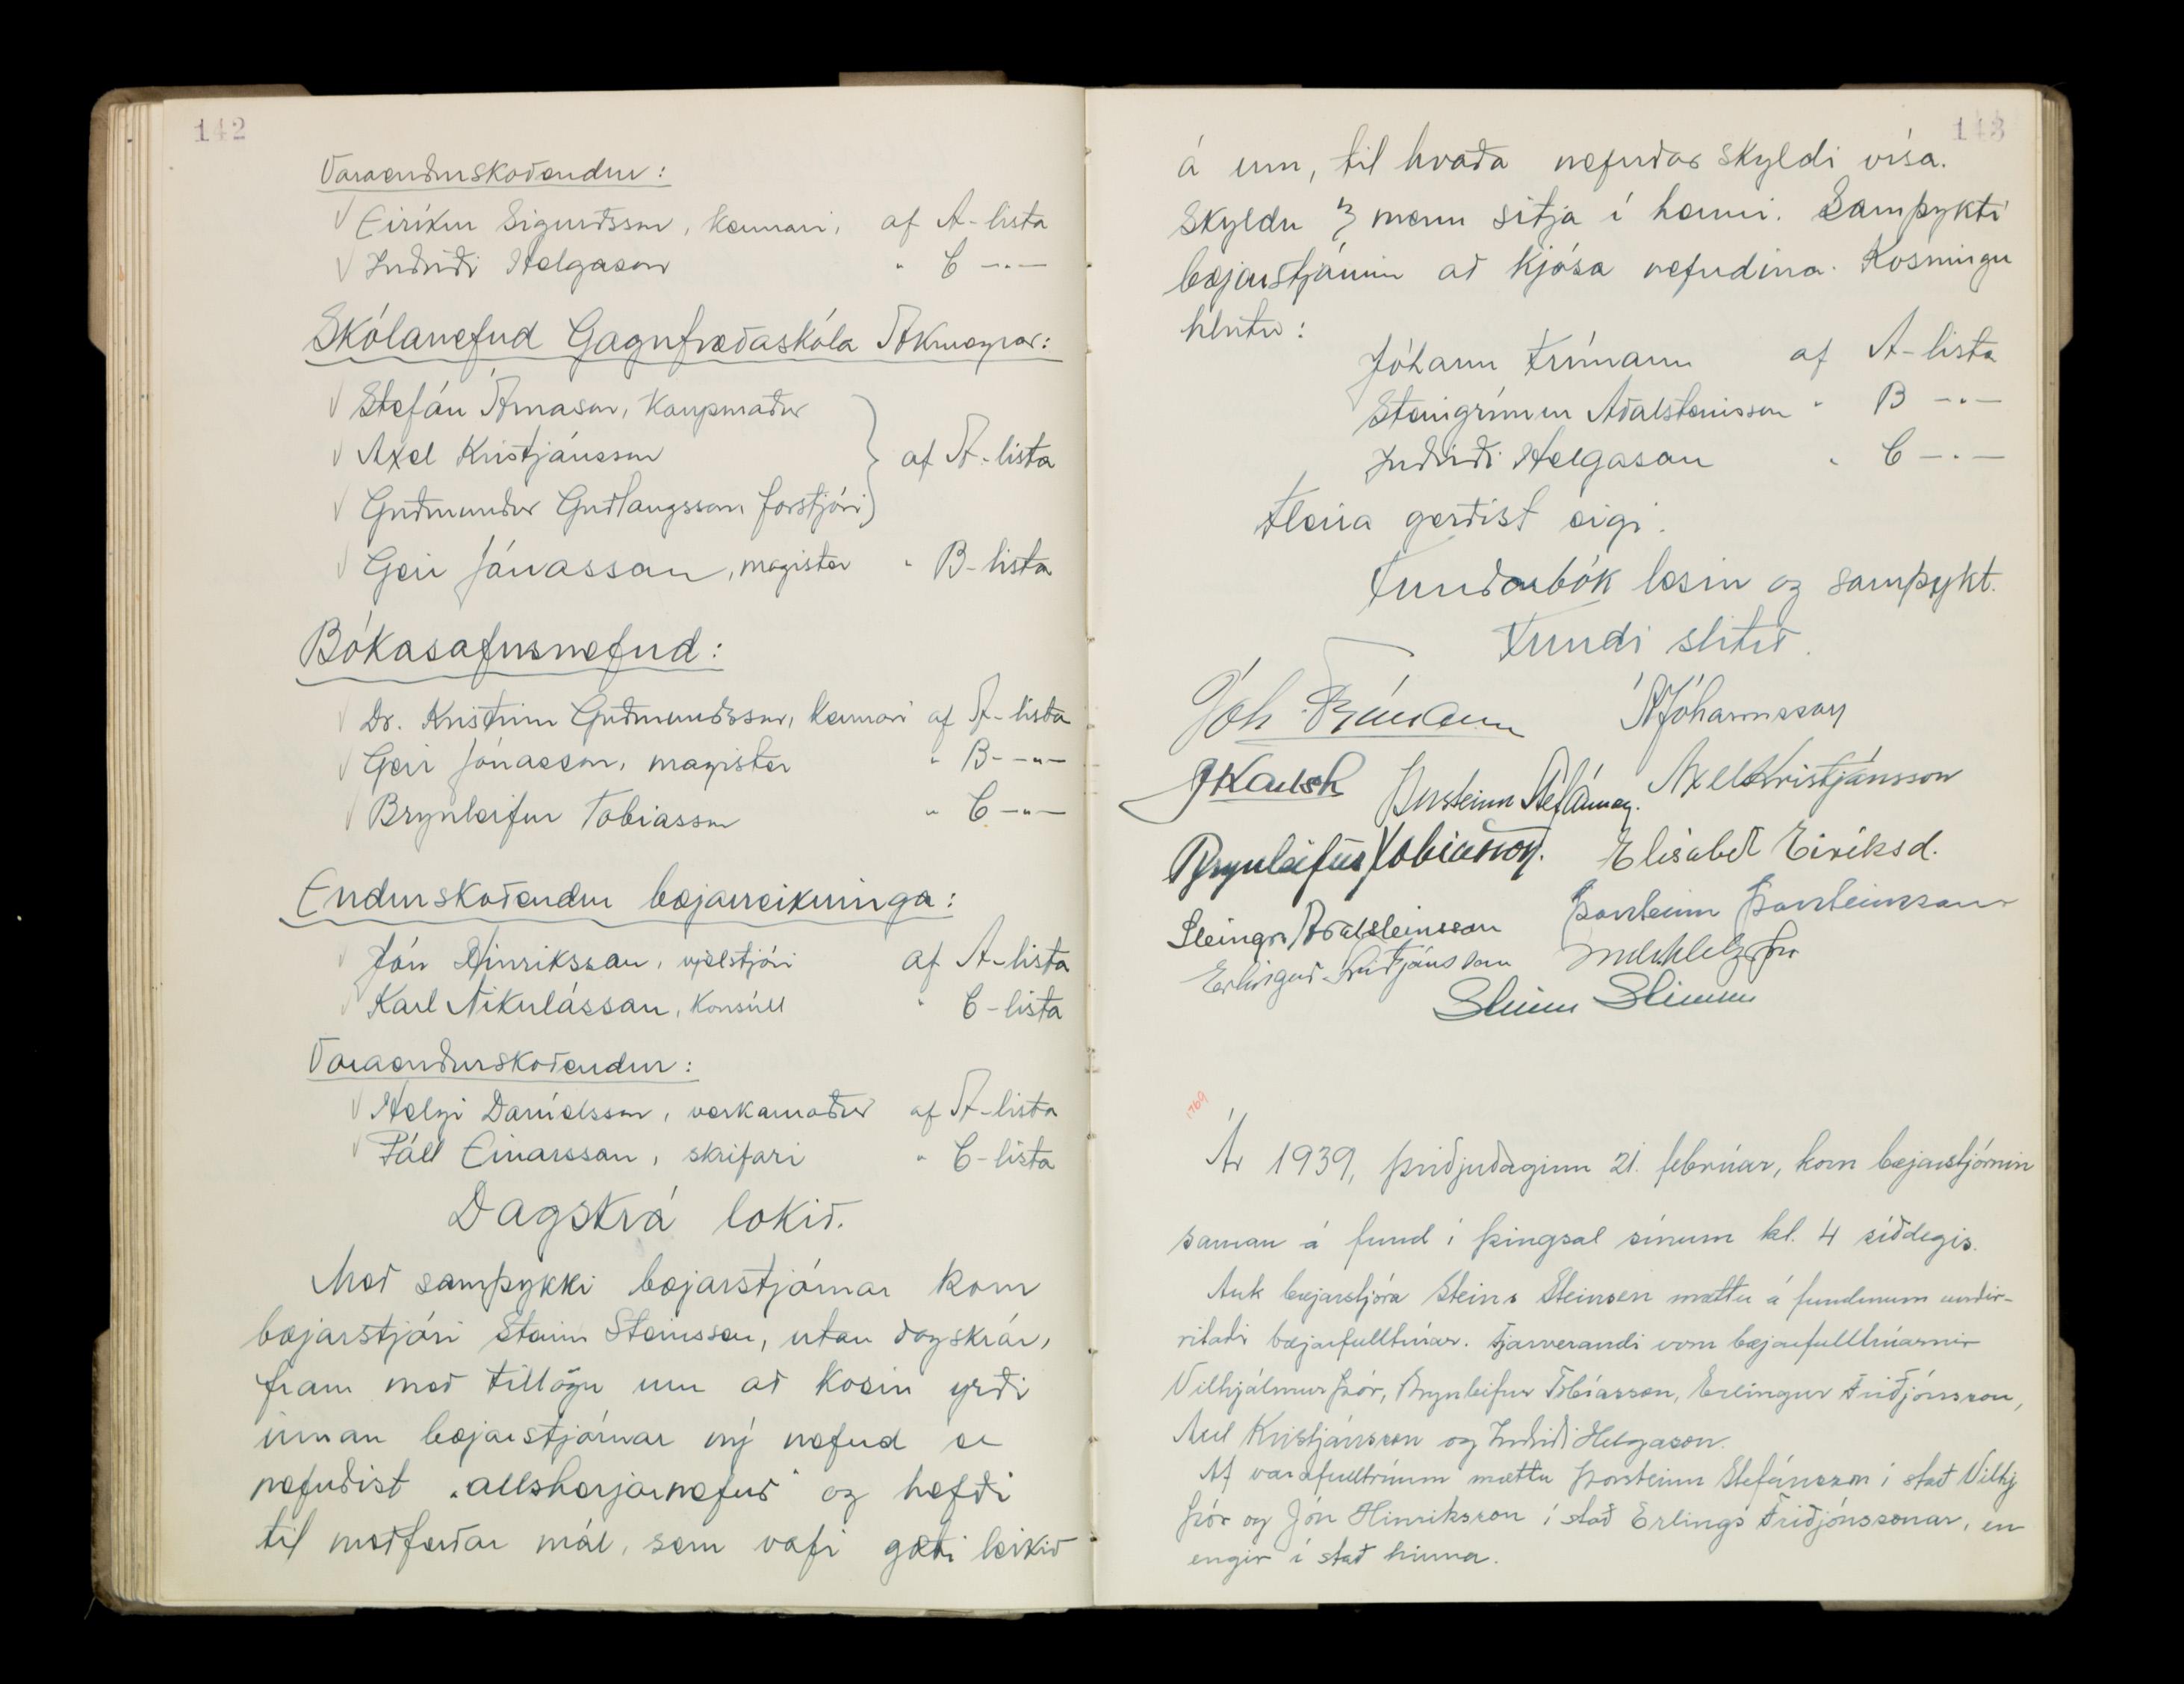 142
Varaendurskoðendur:
√ Eiríkur Sigurðsson, kennari, af A-lista
√ Indriði Helgason " C -"-
Skólanefnd Gagnfræðaskóla Akureyrar:
√ Stefán Árnason, kaupmaður
√ Axel Kristjánsson } af A-lista
√ Guðmundur Guðlaugsson forstjóri
√ Geir Jónasson, magister " B-lista
Bókasafnsnefnd:
√ Dr. Kristinn Guðmundsson, kennari af A-lista
√ Geir Jónasson, magister " B-"-
√ Brynleifur Tobiasson " C -"-
Endurskoðendur bæjarreikninga:
√ Jón Hinriksson, vjelstjóri af A-lista
√ Karl Nikulásson, konsúll " C-lista
Varaendurskoðendur:
√ Helgi Daníelsson, verkamaður af A-lista
√ Páll Einarsson, skrifari " C-lista
Dagskrá lokið.
Með samþykki bæjarstjórnar kom
bæjarstjóri Steinn Steinssen, utan dagskrár,
fram með tillögu um að kosin yrði
innan bæjarstjórnar ný nefnd er
nefndist "allsherjarnefnd" og hefði
til meðferðar mál, sem vafi gæti leikið
143
á um, til hvaða nefndar skyldi vísa.
Skyldu 3 menn sitja í henni. Samþykti
bæjarstjórnin að kjósa nefndina. Kosningu
hlutu:
Jóhann Frímann af A-lista
Steingrímur Aðalsteinsson " B -"-
Indriði Helgason " C -"-
Fleira gerðist eigi.
Fundarbók lesin og samþykt.
Fundi slitið.
Jóh. Frímann Á Jóhannsson
J Karlsh Þorsteinn Stefánss. Axel Kristjánsson
Brynleifur Tobiasson. Elísabet Eiríksd.
Steingr. Aðalsteinsson Þorsteinn Þorsteinsson
Erlingur Friðjónsson Indr Helgason
Steinn Steinsen
1769
Ár 1939, þriðjudaginn 21. febrúar, kom bæjarstjórnin
saman á fund í þingsal sínum kl. 4 síðdegis.
Auk bæjarstjóra Steins Steinsen mættu á fundinum undir-
ritaðir bæjarfulltrúar. Fjarverandi vom bæjarfulltrúarnir
Vilhjálmur Þór, Brynleifur Tobíasson, Erlingur Friðjónsson,
Axel Kristjánsson og Indriði Helgason.
Af varafulltrúum mættu Þorsteinn Stefánsson í stað Vilhj
Þór og Jón Hinriksson í stað Erlings Friðjónssonar, en
engir í stað hinna.